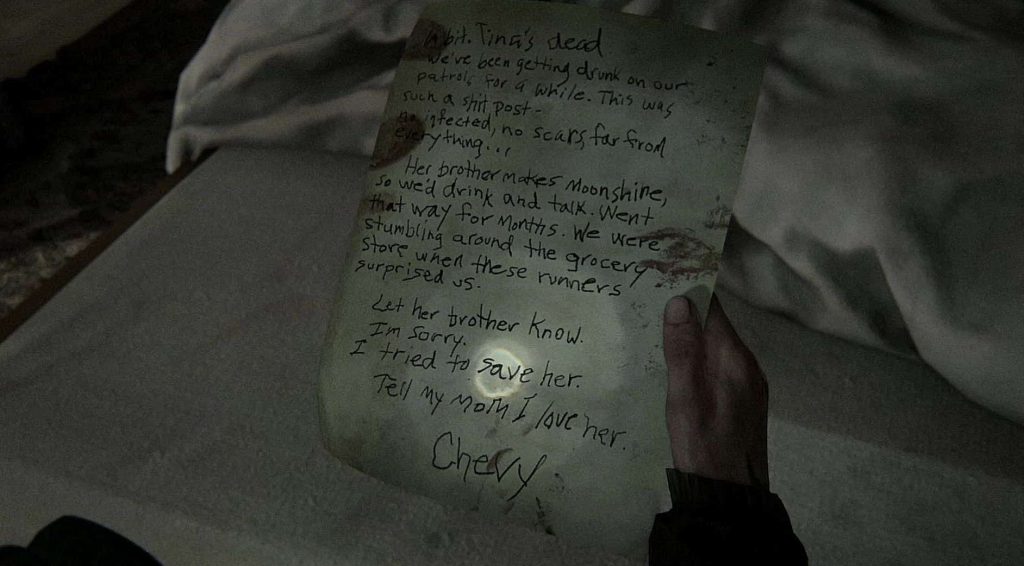 bit. Tina's dead
We've been getting drunk on our
patrols for a while. This was
such a shit post-
no infected, no scars, far from
everything...
Her brother makes Moonshine,
so we'd drink and talk. Went
that way for Months. We were
stumbling around the grocery
store when these runners
surprised us.
Let her brother know.
I'm sorry.
I tried to save her.
Tell my Mom I love her.
Chevy